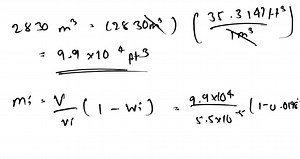 2830 m³ = (2830m³) (35.3147ft³ / 1m³)
= 9.9 x10⁴ ft³
mi = V/vi (1 - wi) = 9.9x10⁴ / 5.5x10⁻⁵ (1-0.01